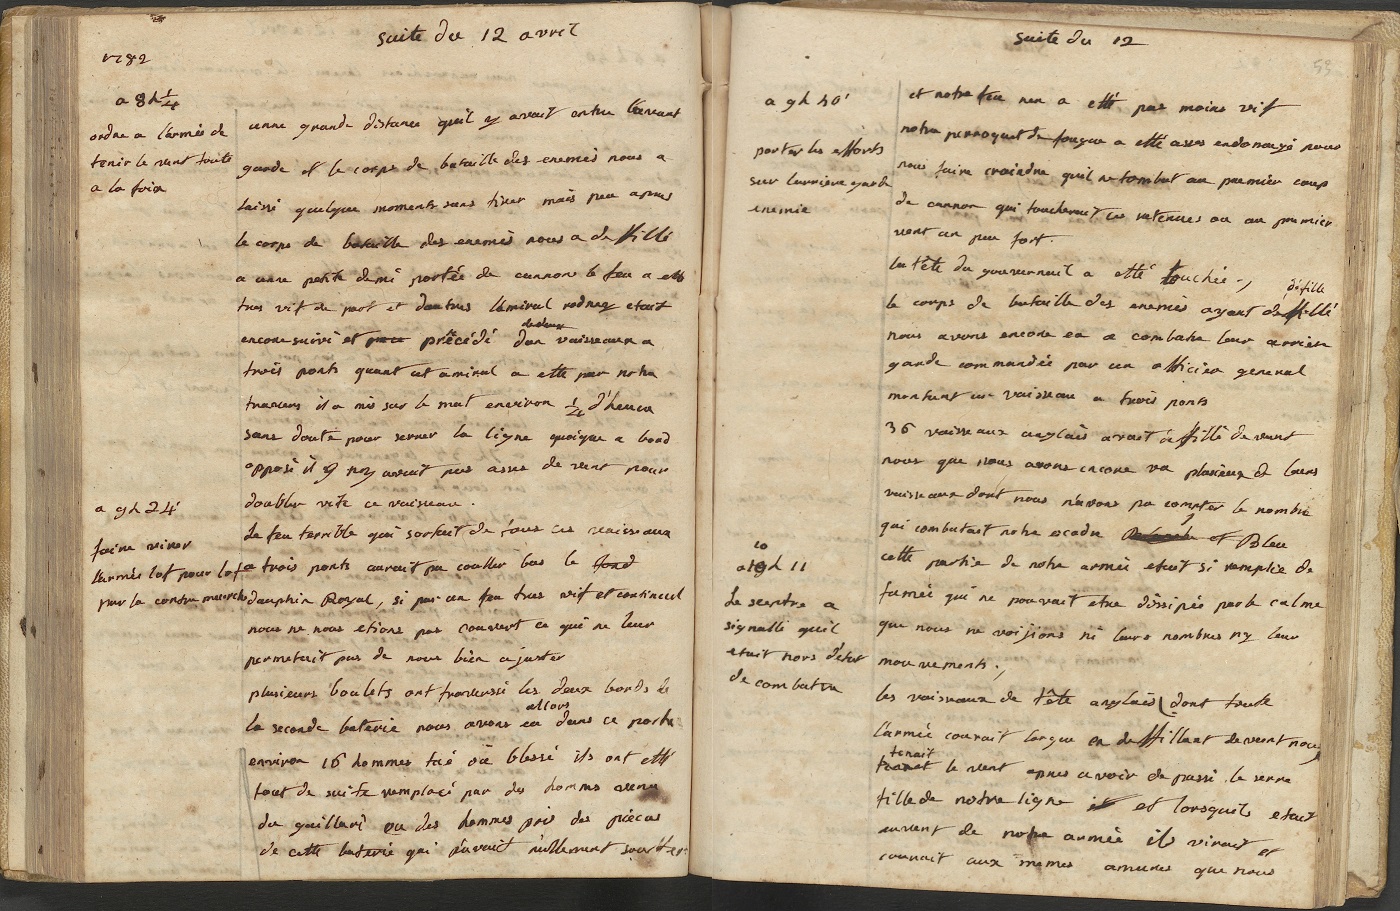 suite du 12 avril
1782
a 8h 1/4
ordre a l'armée de
tenir le vent toute
a la foix
unne grande distance quil y avait entre l'avant
garde et le corps de bataille des enemis nous a
laissé quelque moments sans tirer mais peu apres
le corps de bataille des enemis nous a deffillé
a unne petite demi portée de cannon le feu a etté
tres vif de part et dautres l'amiral rodney etait
encore suivi et précédé d'un vaisseaux a
trois ponts quant cet amiral a etté par notre
travers il a mis sur le mat environ 1/4 d'heure
sans doute pour serrer la ligne quoique a bord
opposé il y noy avait pas asses de vent pour
doubler vite ce vaisseau.
a 9h 24'
faire virer
l'armée lof pour lof
par la contre marche
Le feu terrible qui sortait de tous ces vaisseaux
a trois ponts aurait pu couller bas le
dauphin Royal, si par un feu tres vif et continuel
nous ne nous etions pas couvert ce qui ne leur
permetait pas de nous bien ajuster
plusieurs boulets ont traverssé les deux bords de
la seconde baterie nous avons eu allors dans ce poste
environ 16 hommes tué où blessé ils ont etté
tout de suite remplacé par des hommes venu
du gaillard ou des hommes pris des pièces
de cette baterie qui n'avait nullement souffert
suite du 12
53
a 9h 40'
porter les efforts
sur larrière garde
enemie
et notre feu nen a etté pas moins vif
notre perroquet de fougue a etté asses endomagé pour
nous faire craindre quil ne tombat au premier coup
de cannon qui toucherait ces retenues ou au premier
vent un peu fort.
la tête du gouvernail a etté touchée.,
le corps de bataille des enemis ayant défillé
nous avons encore eu a combatre leur arrière
garde commandée par un officier general
montant un vaisseau a trois ponts
36 vaisseaux anglais avait deffillé devent
nous que nous avons encore vu plusieurs de leurs
vaisseaux dont nous n'avons pu compter le nombre
qui combatait notre escadre Bleu
a 10h 11
Le sceptre a
signallé quil
etait hors d'état
de combatre
cette partie de notre armée etait si remplie de
fumée qui ne pouvait etre dissipée par le calme
que nous ne voijions ni leurs nombres ny leur
mouvements.,
les vaisseaux de tête anglais (dont toute
l'armée courait largue en deffillant devent nous)
tenait le vent apres avoir depassé le serre
fille de notre ligne et lorsquils etait
au vent de notre armée ils virait et
courait aux memes amures que nous